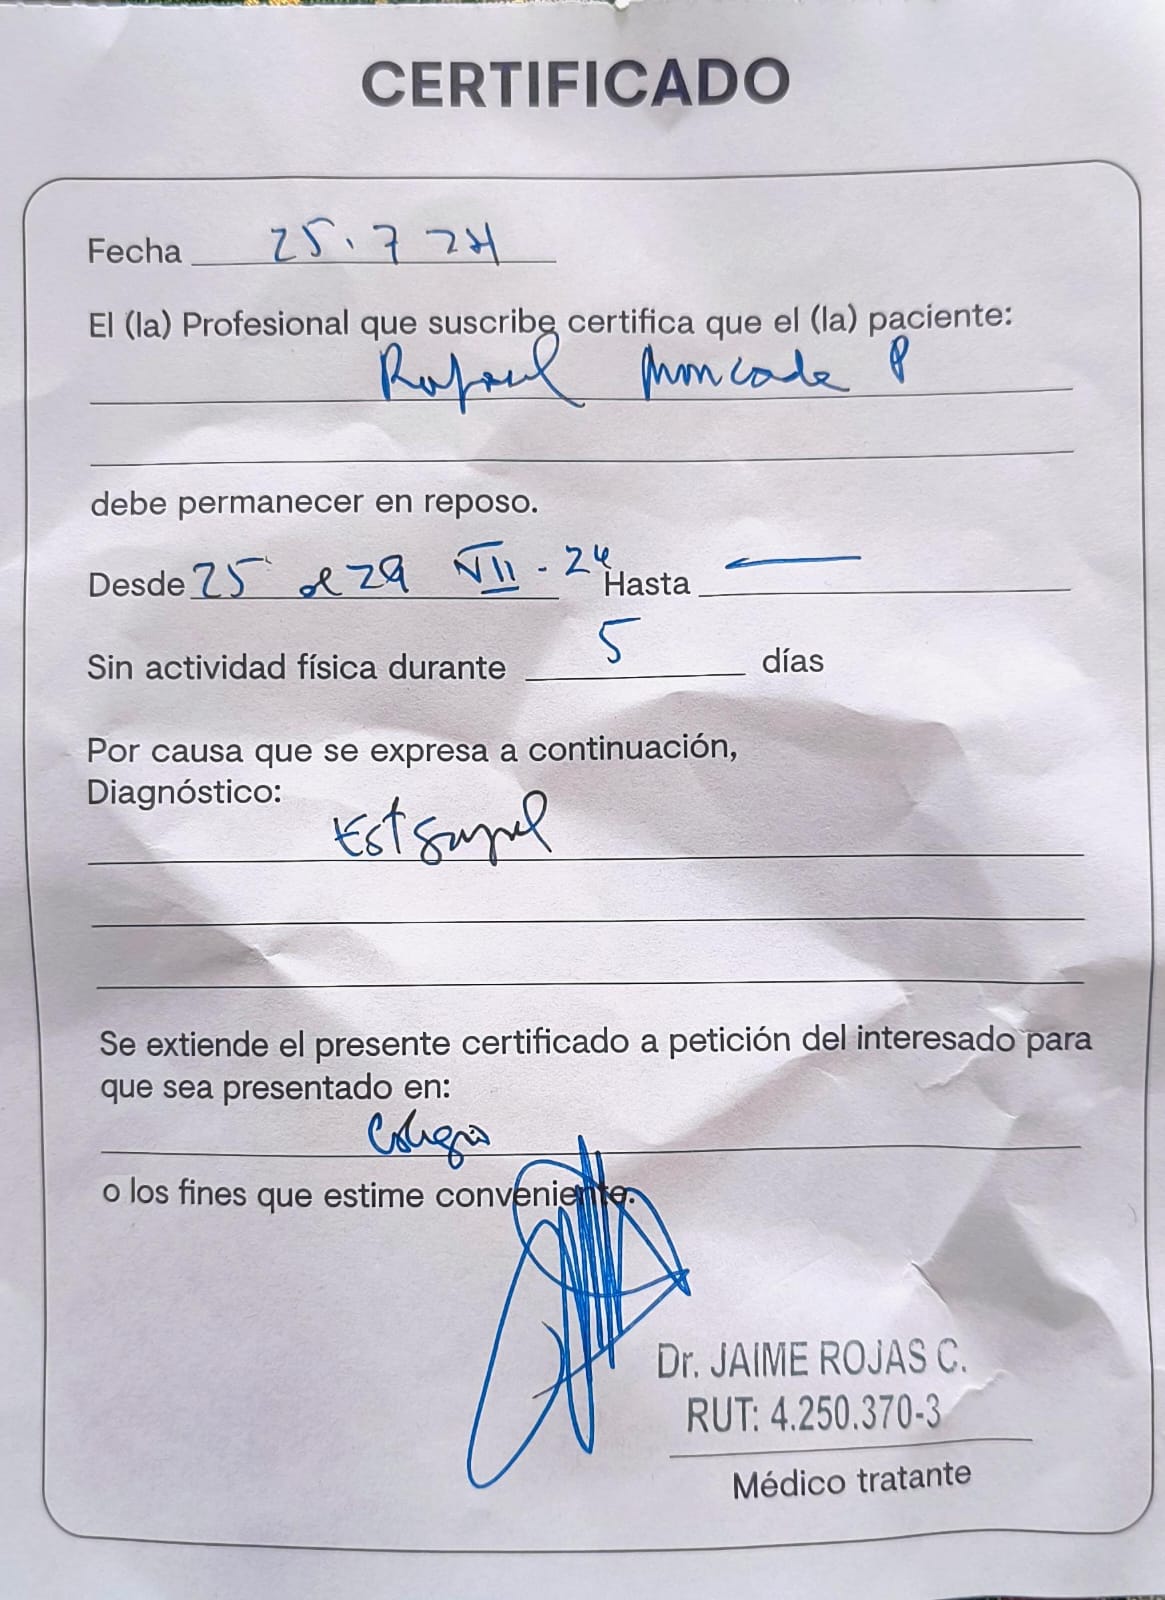 CERTIFICADO
Fecha 25.7 24
El (la) Profesional que suscribe certifica que el (la) paciente:
Rafael Moncada P
debe permanecer en reposo.
Desde 25 al 29 VII - 24 Hasta —
Sin actividad física durante 5 días
Por causa que se expresa a continuación,
Diagnóstico:
Est
Se extiende el presente certificado a petición del interesado para
que sea presentado en:
Colegio
o los fines que estime conveniente.
Dr. JAIME ROJAS C.
RUT: 4.250.370-3
Médico tratante